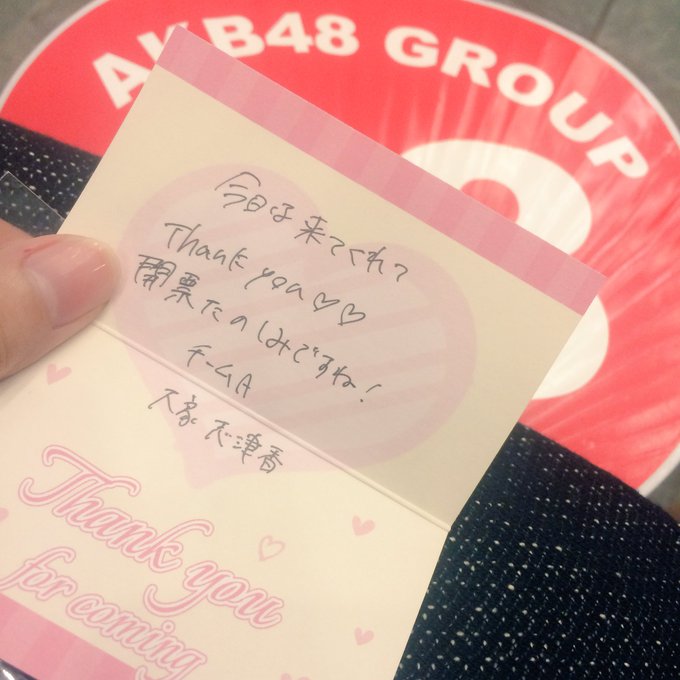 AKB48 GROUP
今日は来てくれて
Thank you♡♡
開票たのしみですね！
チームA
大家志津香
Thank you
for coming